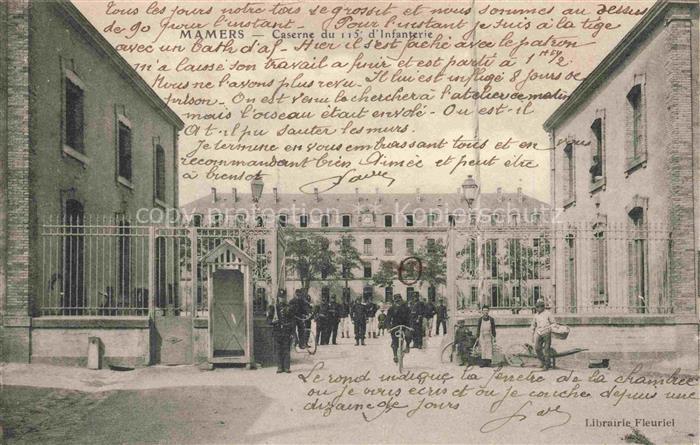 tous les jours notre tas se grossit et nous sommes au dessus
de 90 pour l'instant - Pour l'instant je suis à la tige
MAMERS - Caserne du 115e d'Infanterie
avec un bath d'af - Hier il s'est faché avec le patron
m'a laissé son travail a finir et est parti à 1h
Nous ne l'avons plus revu - Il lui est infligé 8 jours de
prison - On est venu le chercher à l'atelier ce matin
mais l'oiseau était envolé - Ou est-il
At-il pu sauter les murs.
Je termine en vous embrassant tous et en vous
recommandant bien Aimée et peut etre
à bientot
copyright protection - Kopierschutz
Le rond indique la fenetre de la chambre
ou je vous ecris et ou je couche depuis une
dizaine de jours
Librairie Fleuriel